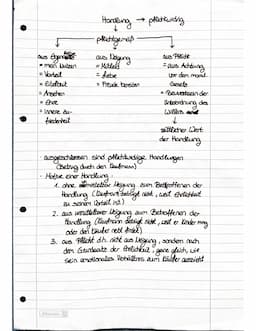 Handlung → pflichtwidrig
pflichtgemäß
aus Eigennutz aus Neigung aus Pflicht
= man = Mitleid = aus Achtung
= Vorteil = Liebe vor dem moral.
= Gesetz
= Ansehen der
= Ehre Unterordnung des
= innere Zu- Willens
friedenheit sittlicher Wert
der Handlung
- ausgeschlossen sind pflichtwidrige Handlungen
(Betrug durch den Kaufmann)
- Motive einer Handlung:
1. ohne unmittelbare Neigung zum Betroffenen der
Handlung (Kaufmann betrügt nicht, weil Ehrlichkeit
zu seinem Vorteil ist)
2. aus unmittelbarer Neigung zum Betroffenen der
Handlung (Kaufmann betrügt nicht, weil er Kinder mag
oder den Käufer nett findet)
3. aus Pflicht d.h. nicht aus Neigung, sondern nach
dem Grundsatz der Ehrlichkeit, ganz gleich, wie
sein emotionales Verhältnis zum Käufer aussieht